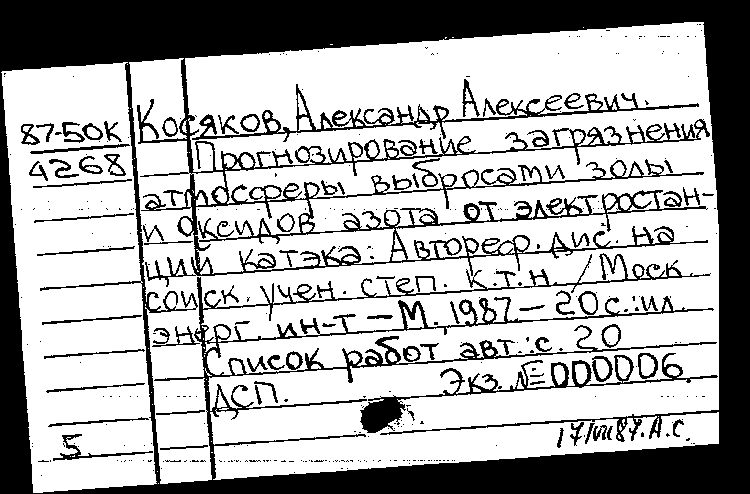 87-50К
4268
Косяков, Александр Алексеевич.
Прогнозирование загрязнения
атмосферы выбросами золы
и оксидов азота от электростан-
ций катэка: Автореф. дис. на
соиск. учен. степ. к.т.н. / Моск.
энерг. ин-т – М., 1987 – 20 с.: ил.
Список работ авт.: с. 20
ДСП. Экз. № 000006.
5. 17/VII 87. А.С.